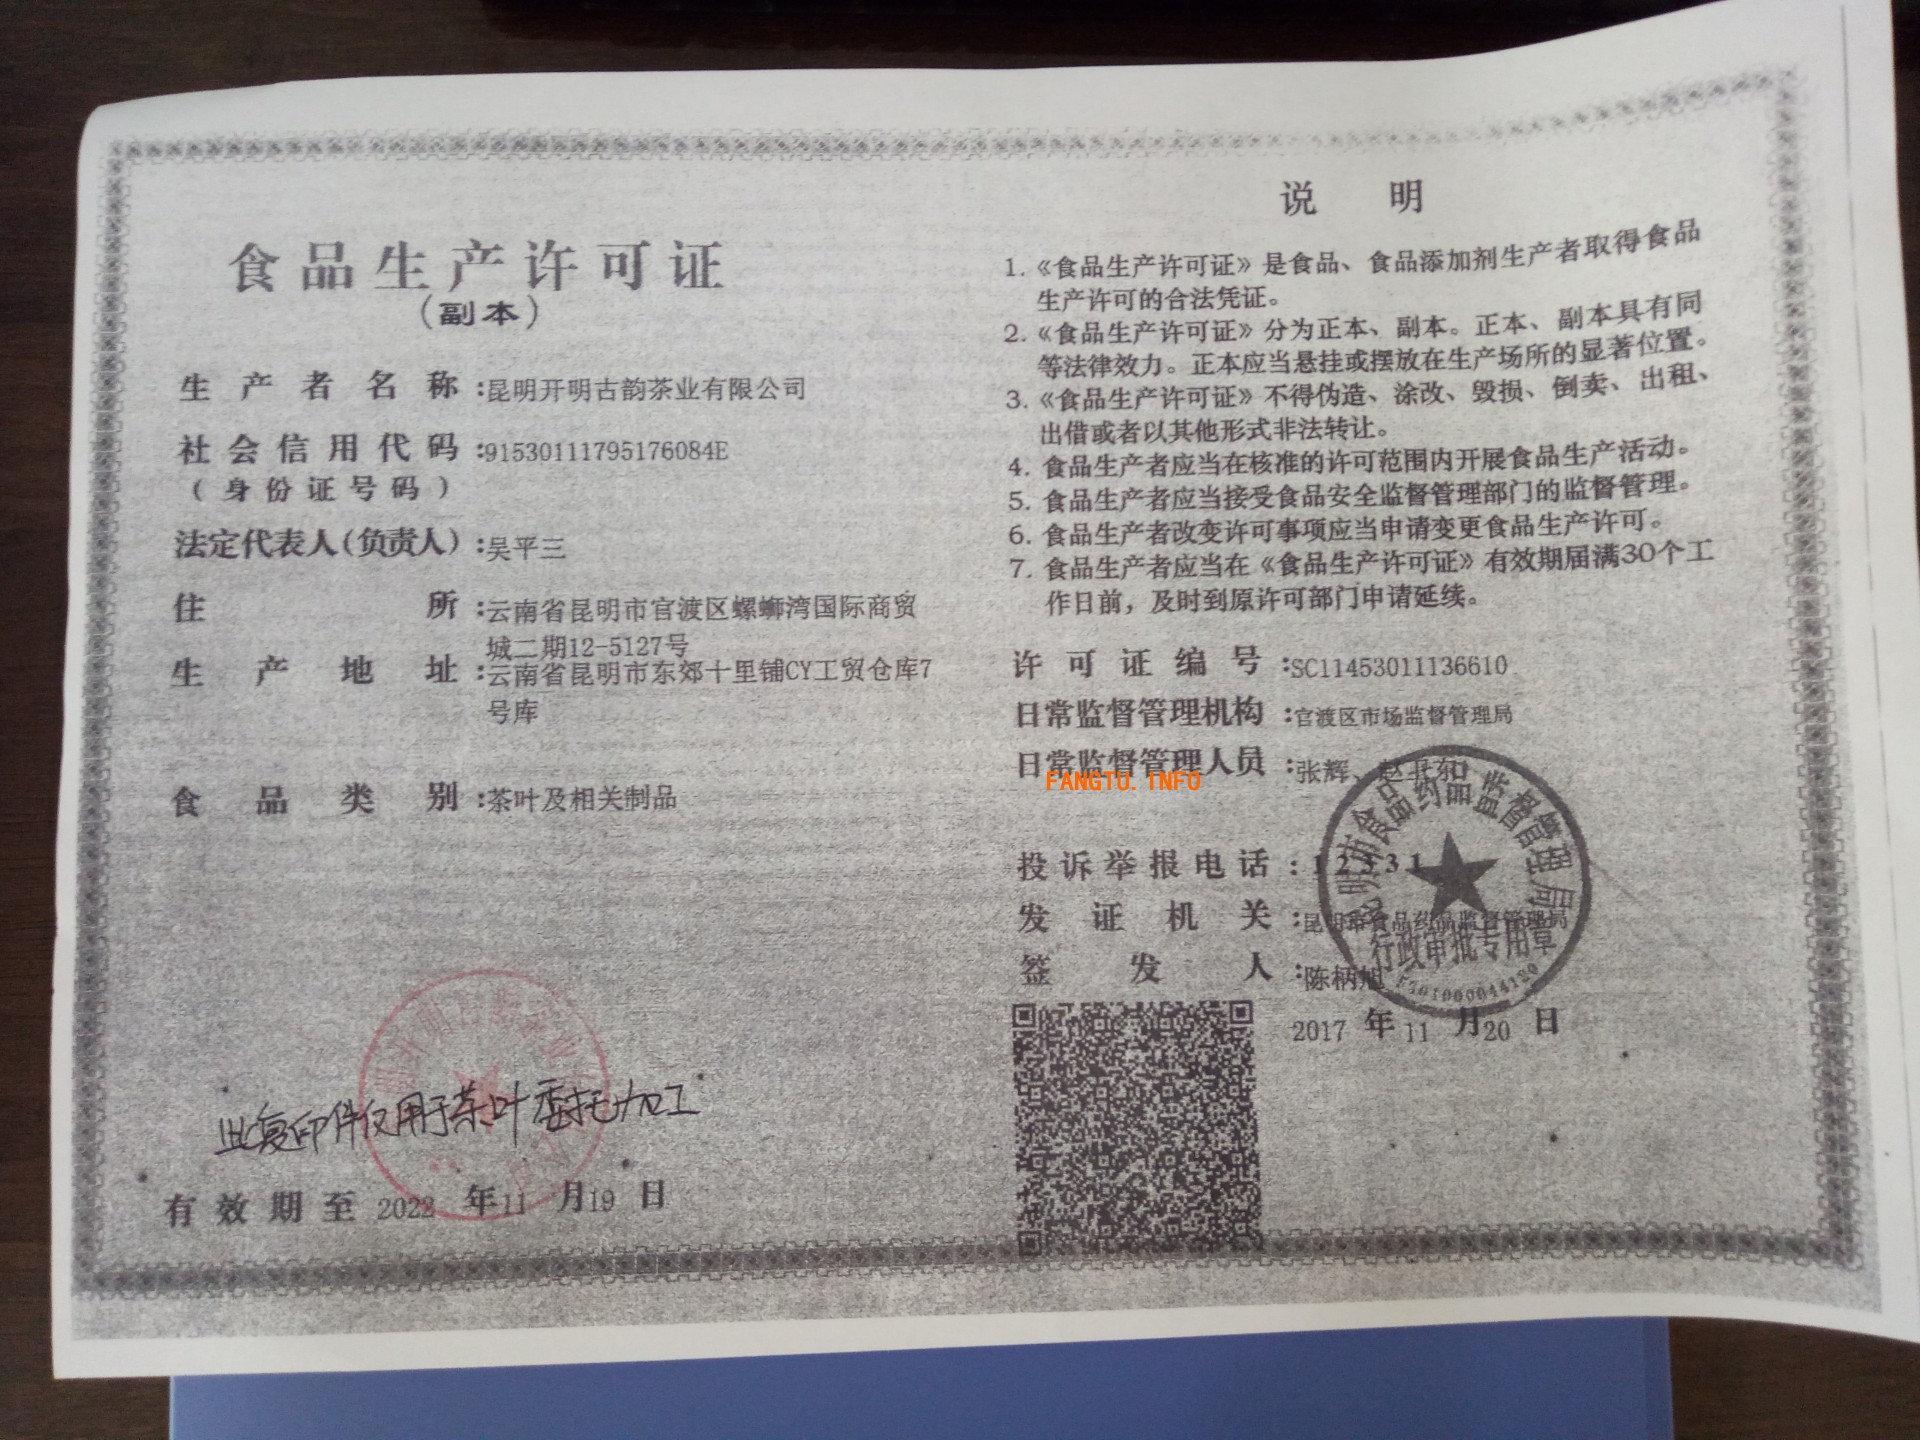 食品生产许可证
(副本)
生产者名称:昆明开明古韵茶业有限公司
社会信用代码:91530111795176084E
(身份证号码)
法定代表人(负责人):吴平三
住所:云南省昆明市官渡区螺蛳湾国际商贸
城二期12-5127号
生产地址:云南省昆明市东郊十里铺CY工贸仓库7
号库
食品类别:茶叶及相关制品
此复印件仅用于茶叶委托加工
有效期至 2022 年11 月19 日
说明
1.《食品生产许可证》是食品、食品添加剂生产者取得食品
生产许可的合法凭证。
2.《食品生产许可证》分为正本、副本。正本、副本具有同
等法律效力。正本应当悬挂或摆放在生产场所的显著位置。
3.《食品生产许可证》不得伪造、涂改、毁损、倒卖、出租、
出借或者以其他形式非法转让。
4. 食品生产者应当在核准的许可范围内开展食品生产活动。
5. 食品生产者应当接受食品安全监督管理部门的监督管理。
6. 食品生产者改变许可事项应当申请变更食品生产许可。
7. 食品生产者应当在《食品生产许可证》有效期届满30个工
作日前，及时到原许可部门申请延续。
许可证编号:SC11453011136610
日常监督管理机构:官渡区市场监督管理局
日常监督管理人员:张辉、赵北东
FANGTU.INFO
投诉举报电话:12331
发证机关:昆明市食品药品监督管理局
签发人:陈柄旭
2017 年 11 月20 日
昆明市食品药品监督管理局
行政审批专用章